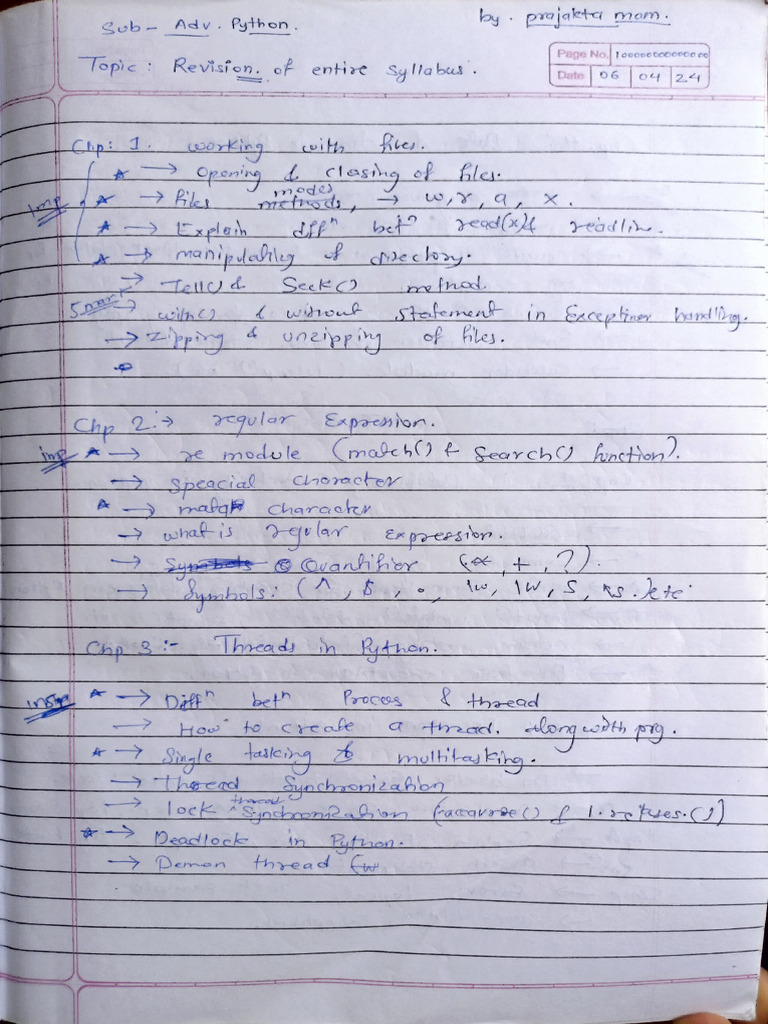 by. prajakta mam.
Sub- Adv. Python.
Topic: Revision. of entire syllabus.
Page No. 10000000000000
Date 06 04 24
Chp: 1. working with files.
★ → Opening & closing of files.
imp ★ → files modes methods, → w, r, a, x.
★ → Explain diffn betn read(x)& readline.
★ → manipulating of directory.
→ Tell() & Seek() method.
5 mark → with() & without statement in handling.
→ Zipping & unzipping of files.
Chp 2:→ regular Expression.
imp ★ → re module (match() & Search() function).
→ Speacial character
★ → character
→ what is regular expression.
→ Quantifier (*, +, ?).
→ Symbols: (^, $, ., \w, \W, S, \s.)etc.
Chp 3:- Threads in Python.
imp ★ → Diffn betn Process & thread
→ How to create a thread. along with prg.
★ → Single tasking & multitasking.
→ Thread Synchronization
→ lock thread Synchronization
★ → Deadlock in Python.
→ Demon thread (w